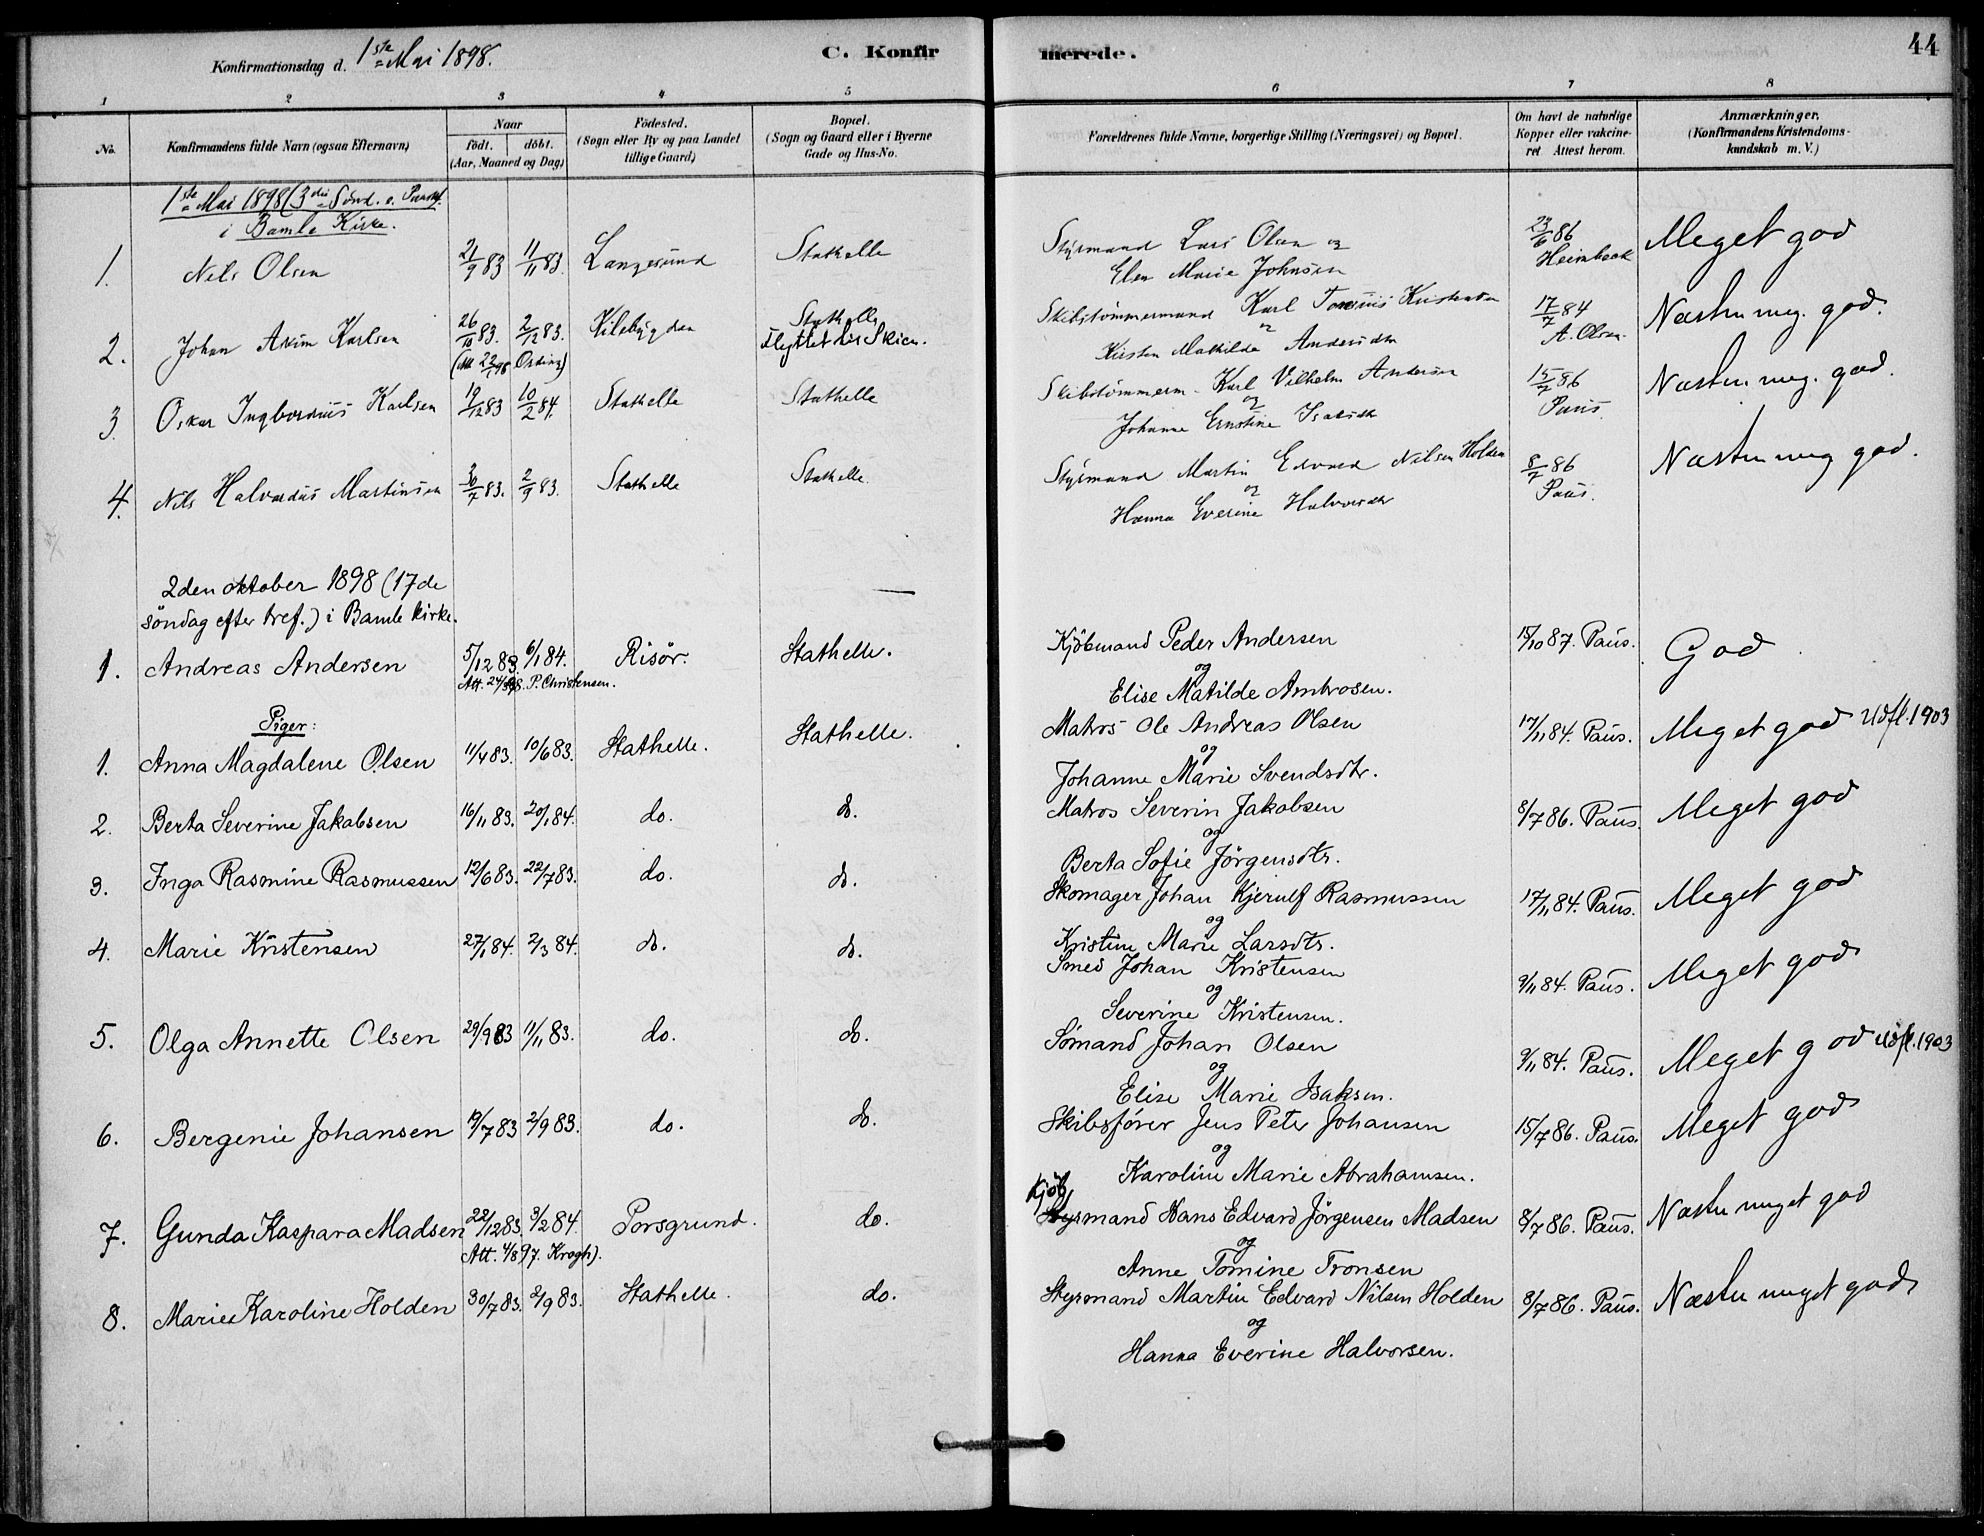 Konfirmationsdag d. 1ste Mai 1898.
C. Konfirmerede.
44
1 2 3 4 5 6 7 8
No.
Konfirmandens fulde Navn (ogsaa Efternavn)
Naar
födt. döbt.
(Aar, Maaned og Dag)
Födested.
(Sogn eller By og paa Landet
tillige Gaard)
Bopæl.
(Sogn og Gaard eller i Byerne
Gade og Hus-No.
Forældrenes fulde Navne, borgerlige Stilling (Næringsvei) og Bopæl.
Om havt de naturlige
Kopper eller vakcine-
ret Attest herom.
Anmærkninger,
(Konfirmandens Kristendoms-
kundskab m. V.)
1ste Mai 1898 (3die Sönd. e. Paaske)
i Bamle Kirke.
1. Nils Olsen 21/9 83 11/11 83. Langesund Stathelle Styrmand Lars Olsen og 23/6 86 Meget god
Elen Marie Johnsen Heimbeck
2. Johan Axim Karlsen 26/10 83. 2/12 83. Kilebygden Stathelle Skibstömmermand Karl Kristensen 17/7 84 Næsten meg. god.
(Att 22/1 98 Ording) flyttet til Skien. og
Kirsten Mathilde Andersdtr A. Olsen.
3. Oskar Ingvardius Karlsen 19/12 83 10/2 84. Stathelle Stathelle Skibstömmerm. Karl Vilhelm Andersen 15/7 86 Næsten meg. god.
og Paus
Johanne Ernstine Isaksdtr
4. Nils Halvardus Martinsen 30/7 83. 2/9 83. Stathelle Stathelle. Styrmand Martin Edvard Nilsen Holden 8/7 86 Næsten meg god.
og Paus.
Hanna Everine Halvorsdtr
2den oktober 1898 (17de
söndag efter tref.) i Bamle kirke.
1. Andreas Andersen 5/12 83 6/1 84. Risör. Stathelle. Kjöbmand Peder Andersen 15/10 87. Paus. God
Att. 24/ 98. P. Christensen. og
Elise Matilde Ambrosen.
Piger:
1. Anna Magdalene Olsen 11/4 83. 10/6 83. Stathelle. Stathelle. Matros Ole Andreas Olsen 17/11 84. Paus. Meget god Udfl. 1903
og
Johanne Marie Svendsdtr.
2. Berta Severine Jakobsen 16/11 83. 20/1 84. do. do. Matros Severin Jakobsen 8/7 86. Paus. Meget god
og
Berta Sofie Jörgensdtr.
3. Inga Rasmine Rasmussen 12/6 83. 22/7 83. do. do. Skomager Johan Kjerulf Rasmussen 17/11 84. Paus. Meget god
og
Kristine Marie Larsdtr.
4. Marie Kristensen 27/1 84. 2/3 84. do. do. Smed Johan Kristensen 9/11 84. Paus. Meget god
og
Severine Kristensen.
5. Olga Annette Olsen 29/9 83 11/11 83. do. do. Sömand Johan Olsen 9/11 84. Paus. Meget god Udfl. 1903
og
Elise Marie Isaksen.
6. Bergenie Johansen 19/7 83 2/9 83. do. do. Skibsförer Jens Peter Johansen 15/7 86. Paus. Meget god
og
Karoline Marie Abrahamsen.
Kjöb
7. Gunda Kaspara Madsen 22/12 83. 3/2 84. Porsgrund. do. Styrmand Hans Edvard Jörgensen Madsen 8/7 86. Paus. Næsten meget god
Att. 4/8 97. Krogh). og
Anne Tomine Tronsen
8. Marie Karoline Holden 30/7 83. 2/9 83. Stathelle. do. Styrmand Martin Edvard Nilsen Holden 8/7 86. Paus. Næsten meget god
og
Hanna Everine Halvorsen.